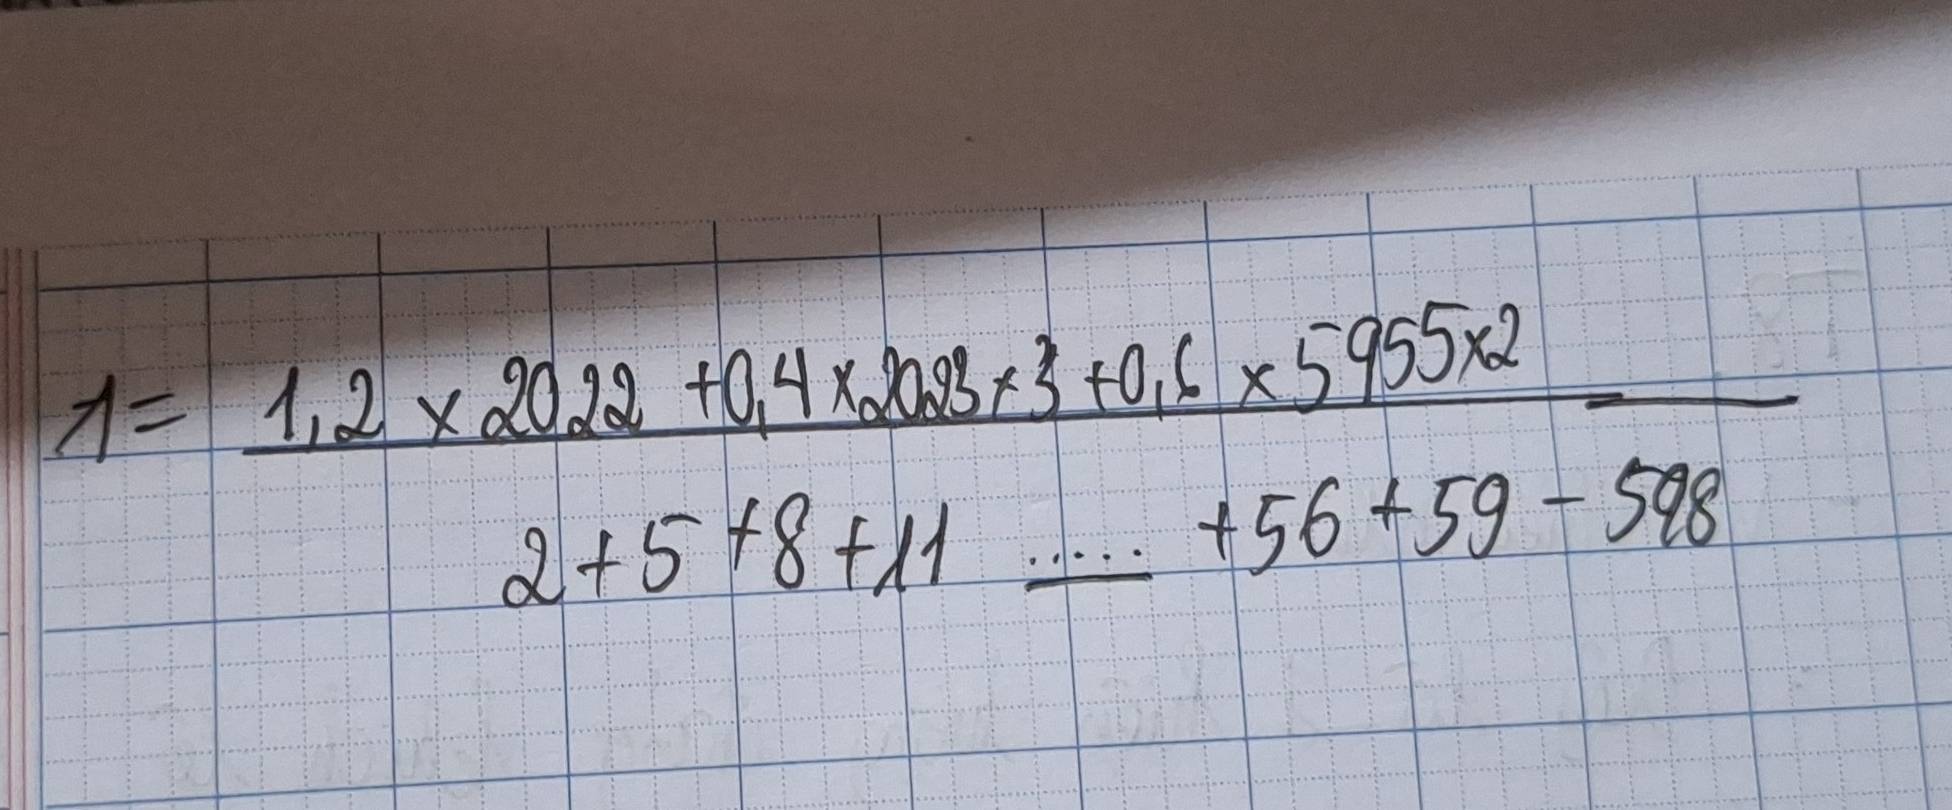 1 = 1,2 x 2022 + 0,4 x 2023 x 3 + 0,6 x 5955 x 2
2 + 5 + 8 + 11 ..... + 56 + 59 - 598